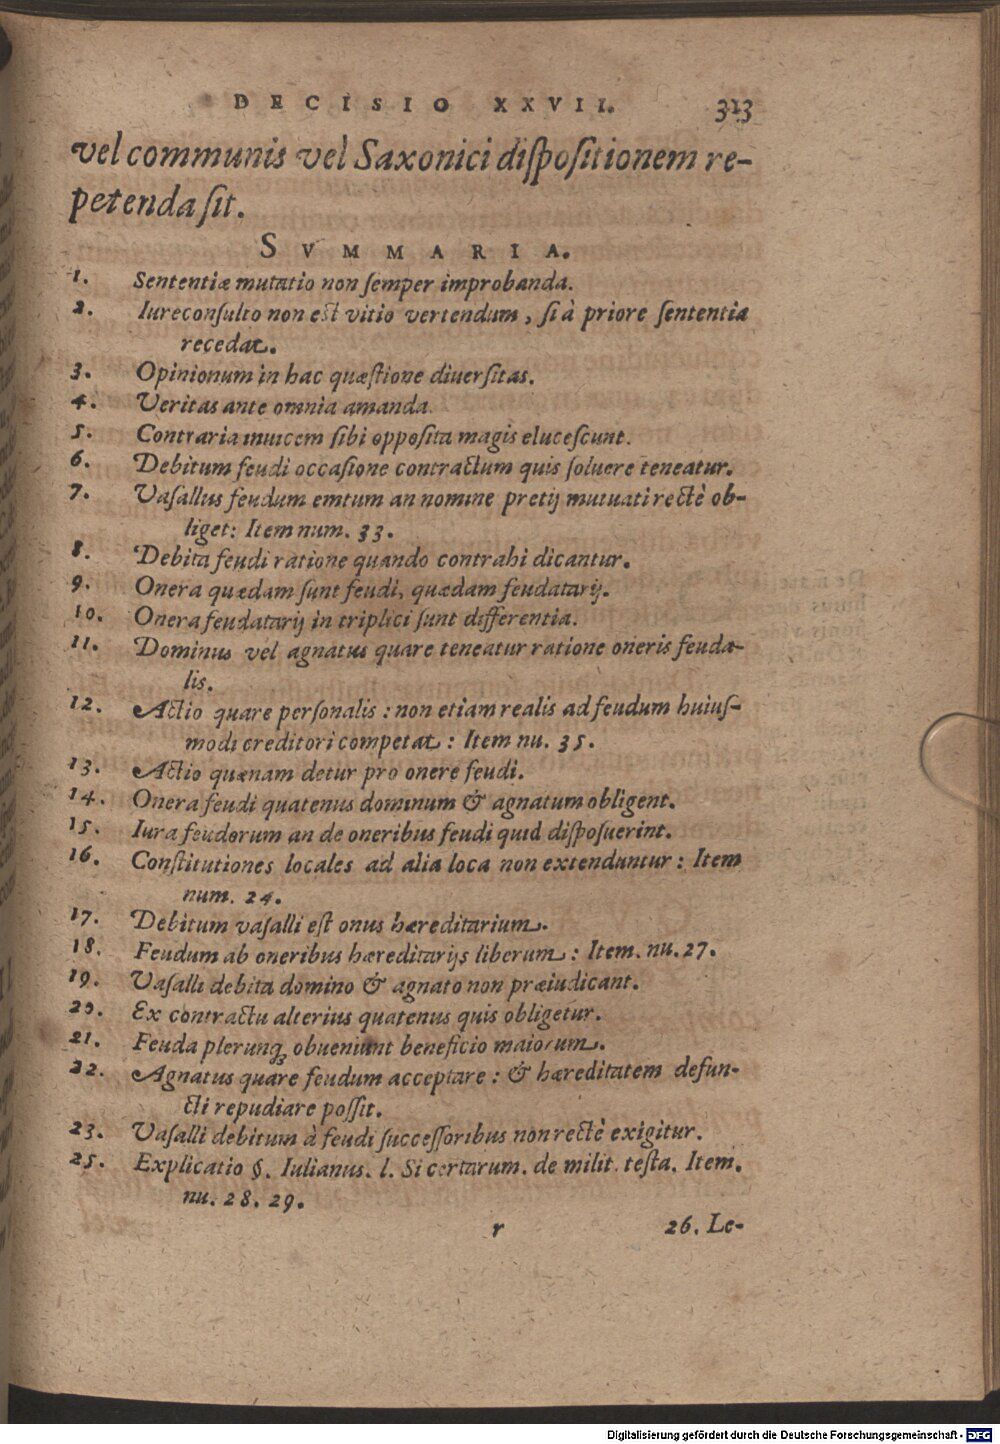 DECISIO XXVII. 313
vel communis vel Saxonici diſpoſitionem re-
petenda ſit.
SVMMARIA.
1. Sententiæ mutatio non ſemper improbanda.
2. Iureconſulto non eſt vitio vertendum, ſi à priore ſententia
recedat.
3. Opinionum in hac quæſtione diuerſitas.
4. Veritas ante omnia amanda.
5. Contraria inuicem ſibi oppoſita magis eluceſcunt.
6. Debitum feudi occaſione contractum quis ſoluere teneatur.
7. Vaſallus feudum emtum an nomine pretij mutuati rectè ob-
liget: Item num. 33.
8. Debita feudi ratione quando contrahi dicantur.
9. Onera quædam ſunt feudi, quædam feudatarij.
10. Onera feudatarij in triplici ſunt differentia.
11. Dominus vel agnatus quare teneatur ratione oneris feuda-
lis.
12. Actio quare perſonalis: non etiam realis ad feudum huiuſ-
modi creditori competat: Item nu. 35.
13. Actio quænam detur pro onere feudi.
14. Onera feudi quatenus dominum & agnatum obligent.
15. Iura feudorum an de oneribus feudi quid diſpoſuerint.
16. Conſtitutiones locales ad alia loca non extenduntur: Item
num. 24.
17. Debitum vaſalli eſt onus hæreditarium.
18. Feudum ab oneribus hæreditarijs liberum: Item. nu. 27.
19. Vaſalli debita domino & agnato non præiudicant.
20. Ex contractu alterius quatenus quis obligetur.
21. Feuda plerunq; obueniunt beneficio maiorum.
22. Agnatus quare feudum acceptare: & hæreditatem defun-
cti repudiare poſſit.
23. Vaſalli debitum à feudi ſucceſſoribus non rectè exigitur.
25. Explicatio §. Iulianus. l. Si certarum. de milit. teſta. Item.
nu. 28. 29.
r 26. Le-
Digitalisierung gefördert durch die Deutsche Forschungsgemeinschaft - DFG